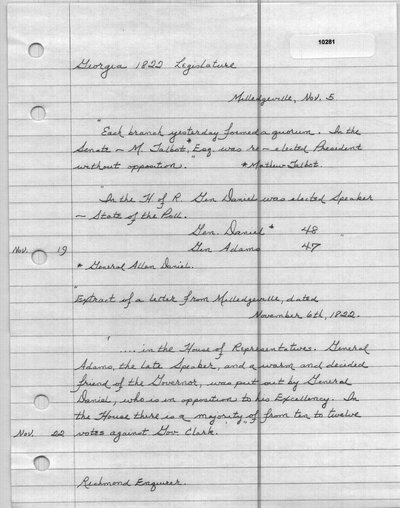 10281
Georgia 1822 Legislature
Milledgeville, Nov. 5
"Each branch yesterday formed a quorum. In the
Senate - M. Talbot,* Esq. was re-elected President
without opposition." *Mathew Talbot.
"In the H. of R. Gen Daniel was elected Speaker
- State of the Poll.
Gen. Daniel * 48
Gen Adams 47 "
Nov. 19
* General Allen Daniel.
"Extract of a letter from Milledgeville, dated
November 6th, 1822.
'....in the House of Representatives. General
Adams, the late Speaker, and a warm and decided
friend of the Governor, was put out by General
Daniel, who is in opposition to his Excellency. In
the House there is a majority of from ten to twelve
Nov. 22 votes against Gov. Clark.' "
Richmond Enquirer.